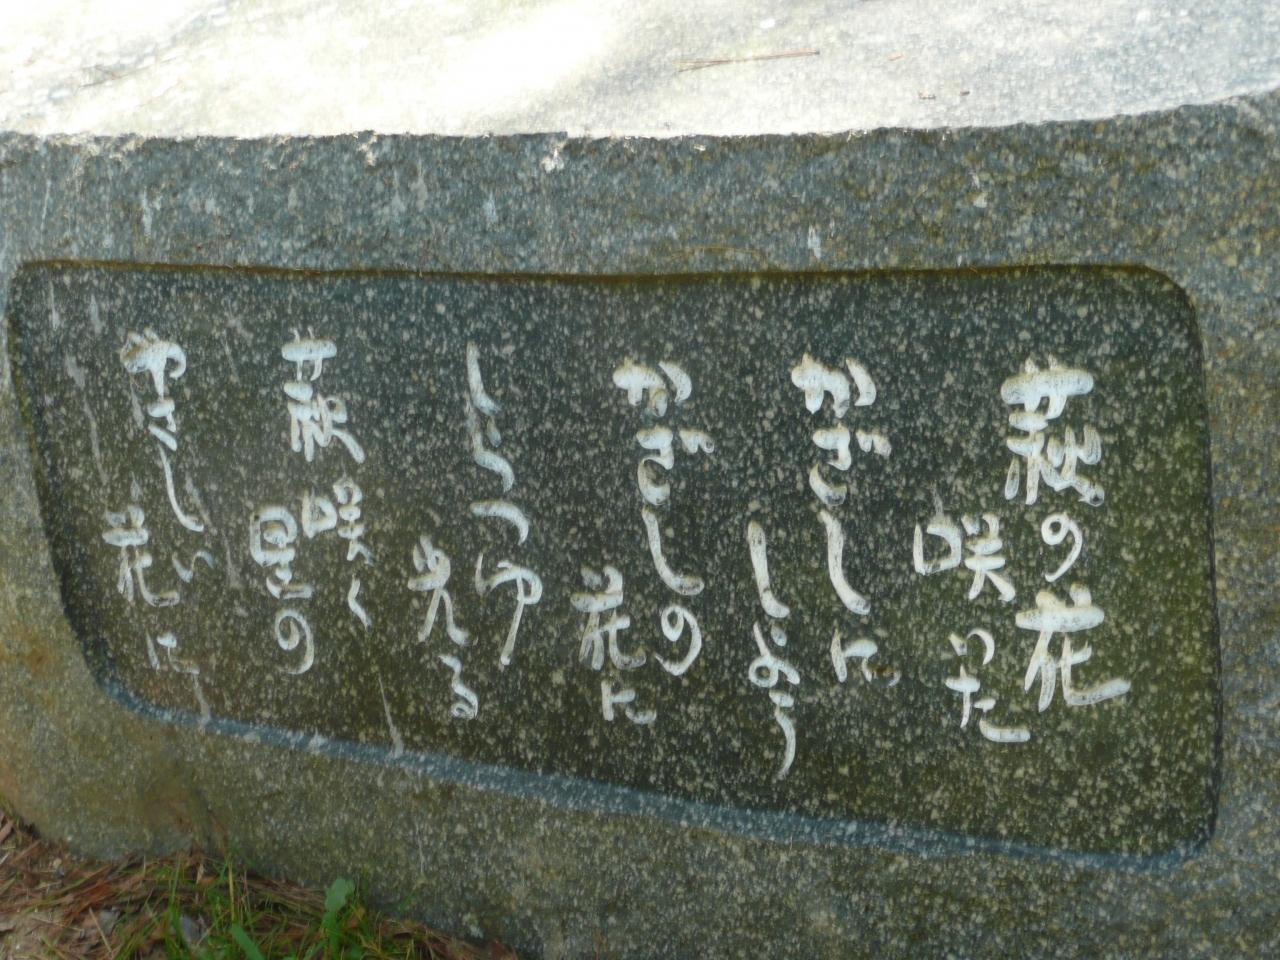 萩の花
咲いた
かざしに
しよう
かざしの
花に
しらつゆ
光る
萩咲く
里の
やさしい
花に